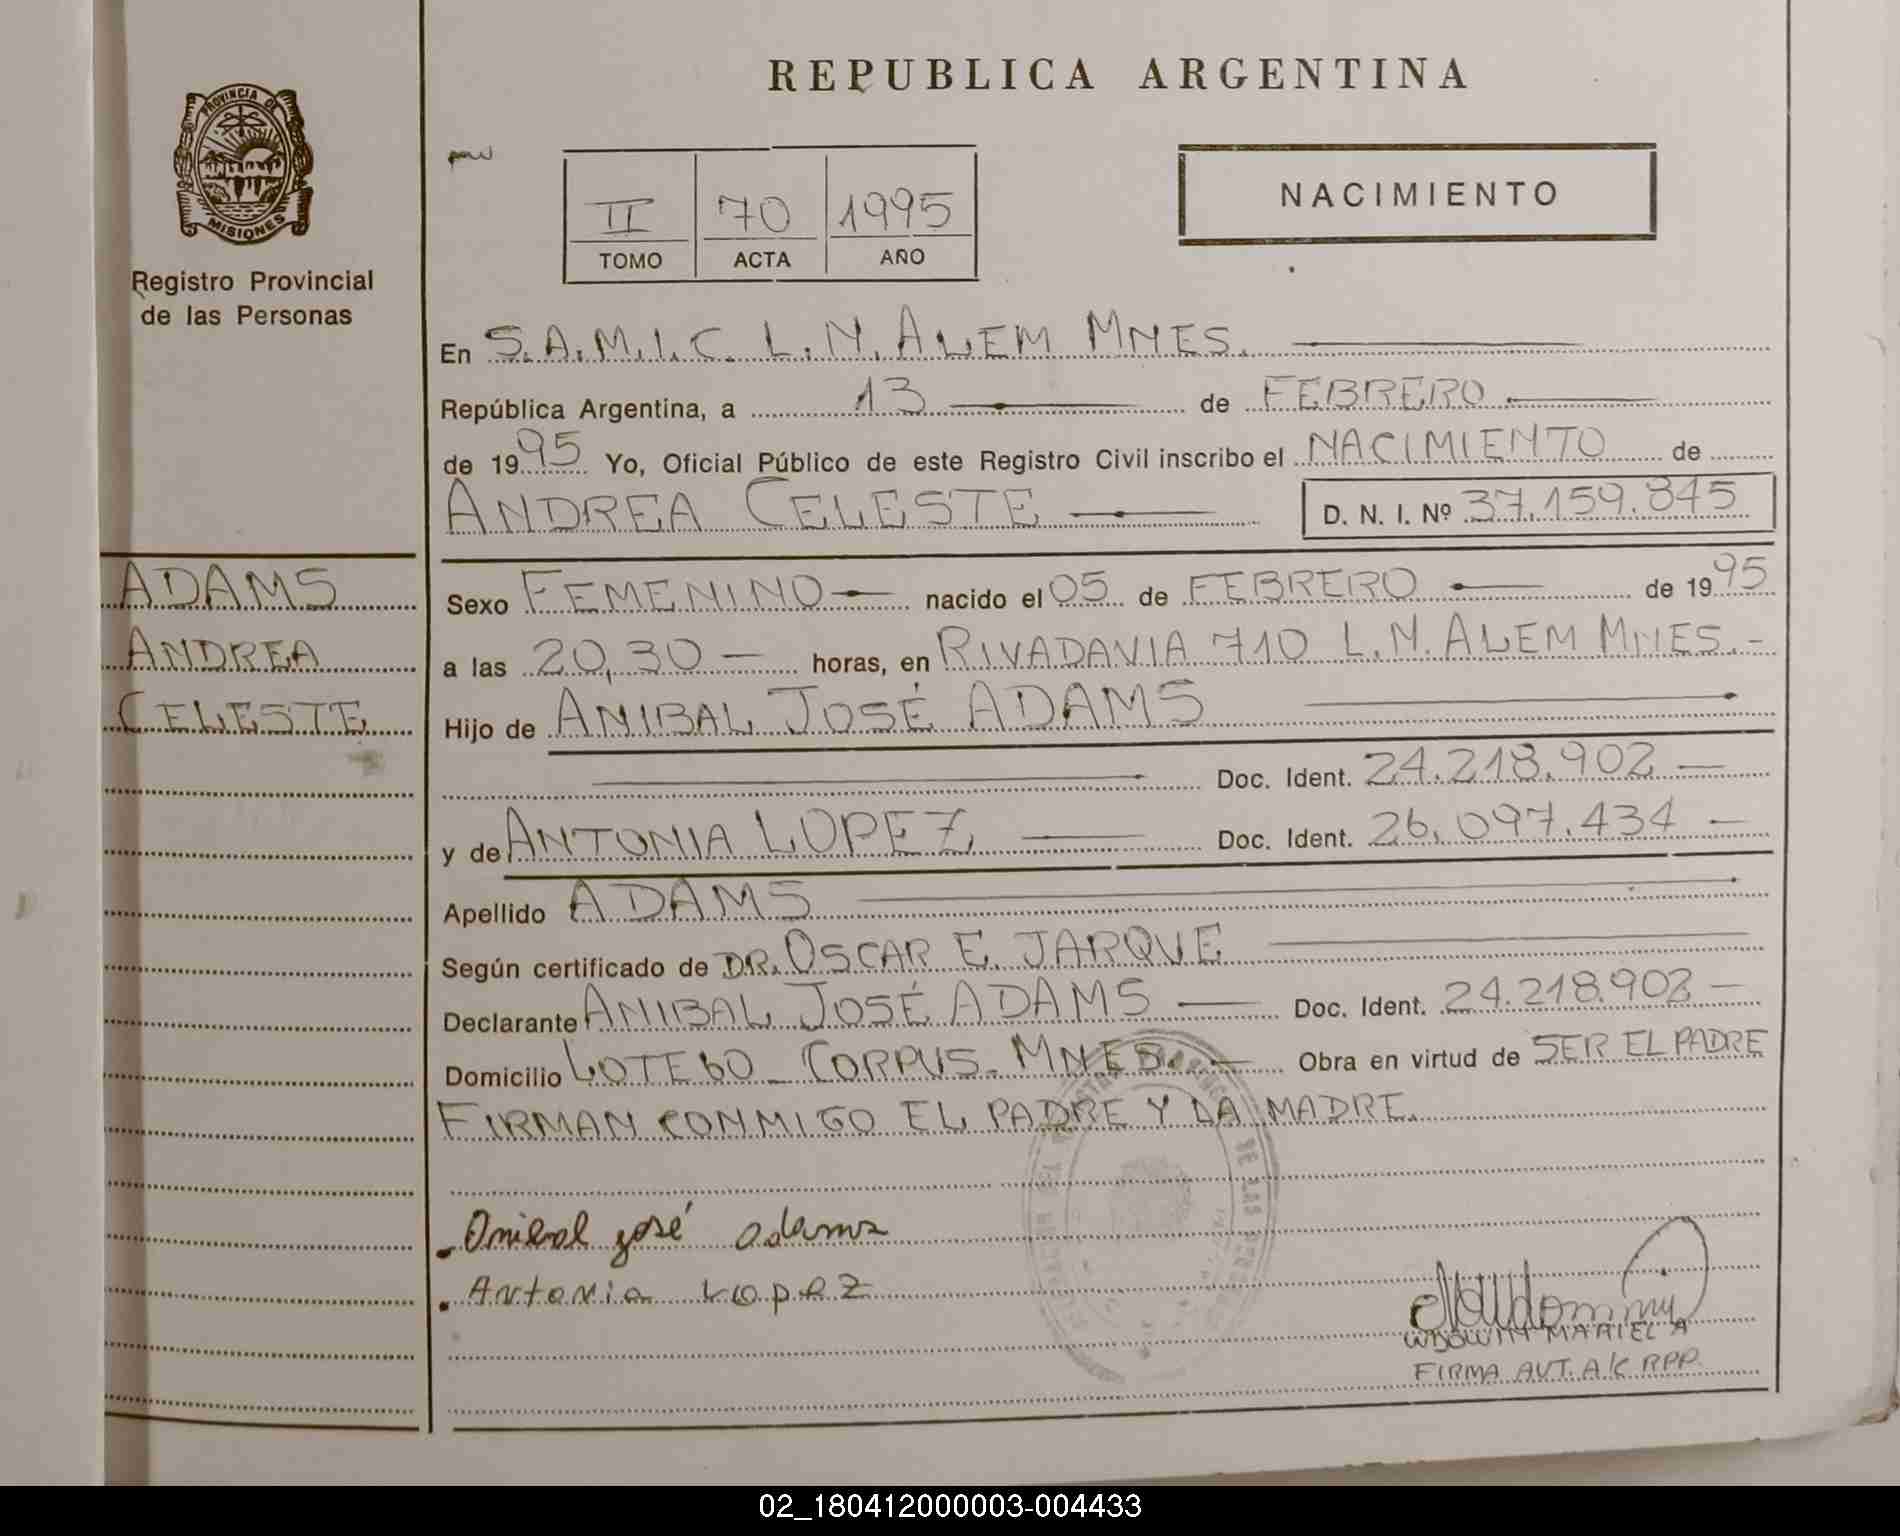 REPUBLICA ARGENTINA
PROVINCIA DE
MISIONES
Registro Provincial
de las Personas
II 70 1995
TOMO ACTA AÑO
NACIMIENTO
En S.A.M.I.C. L.N. ALEM MNES.
República Argentina, a 13 de FEBRERO
de 1995 Yo, Oficial Público de este Registro Civil inscribo el NACIMIENTO de
ANDREA CELESTE D. N. I. Nº 37.159.845
ADAMS
ANDREA
CELESTE
Sexo FEMENINO nacido el 05 de FEBRERO de 1995
a las 20,30 horas, en RIVADAVIA 710 L.N. ALEM MNES.
Hijo de ANIBAL JOSÉ ADAMS
Doc. Ident. 24.218.902
y de ANTONIA LOPEZ Doc. Ident. 26.097.434
Apellido ADAMS
Según certificado de DR. OSCAR E. JARQUE
Declarante ANIBAL JOSÉ ADAMS Doc. Ident. 24.218.902
Domicilio LOTE 60 - CORPUS - MNES. Obra en virtud de SER EL PADRE
FIRMAN CONMIGO EL PADRE Y LA MADRE.
Anibal José adams
Antonia Lopez
WDOWIN MARIEL A
FIRMA AUT. A/C RPP.
02_180412000003-004433